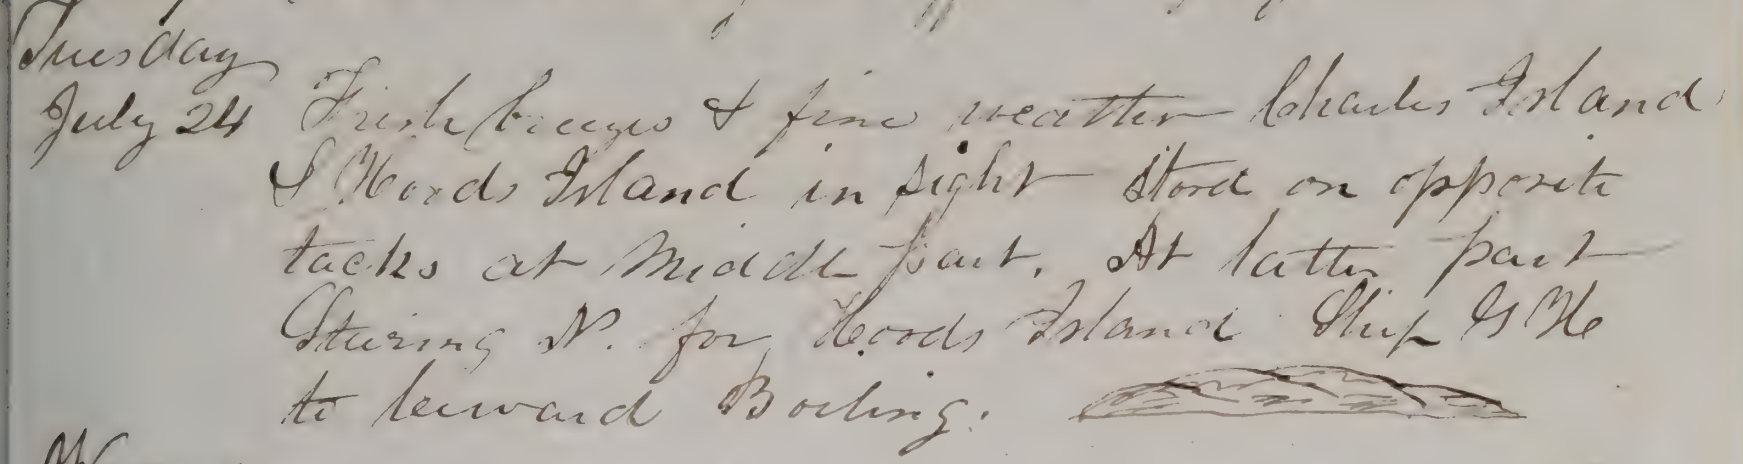 Tuesday
July 24 Fresh breezes & fine weather Charles Island
& Hoods Island in sight Stood on opposite
tacks at Middle part. At latter part
Stering N. for Hoods Island Ship
to leeward Boiling.